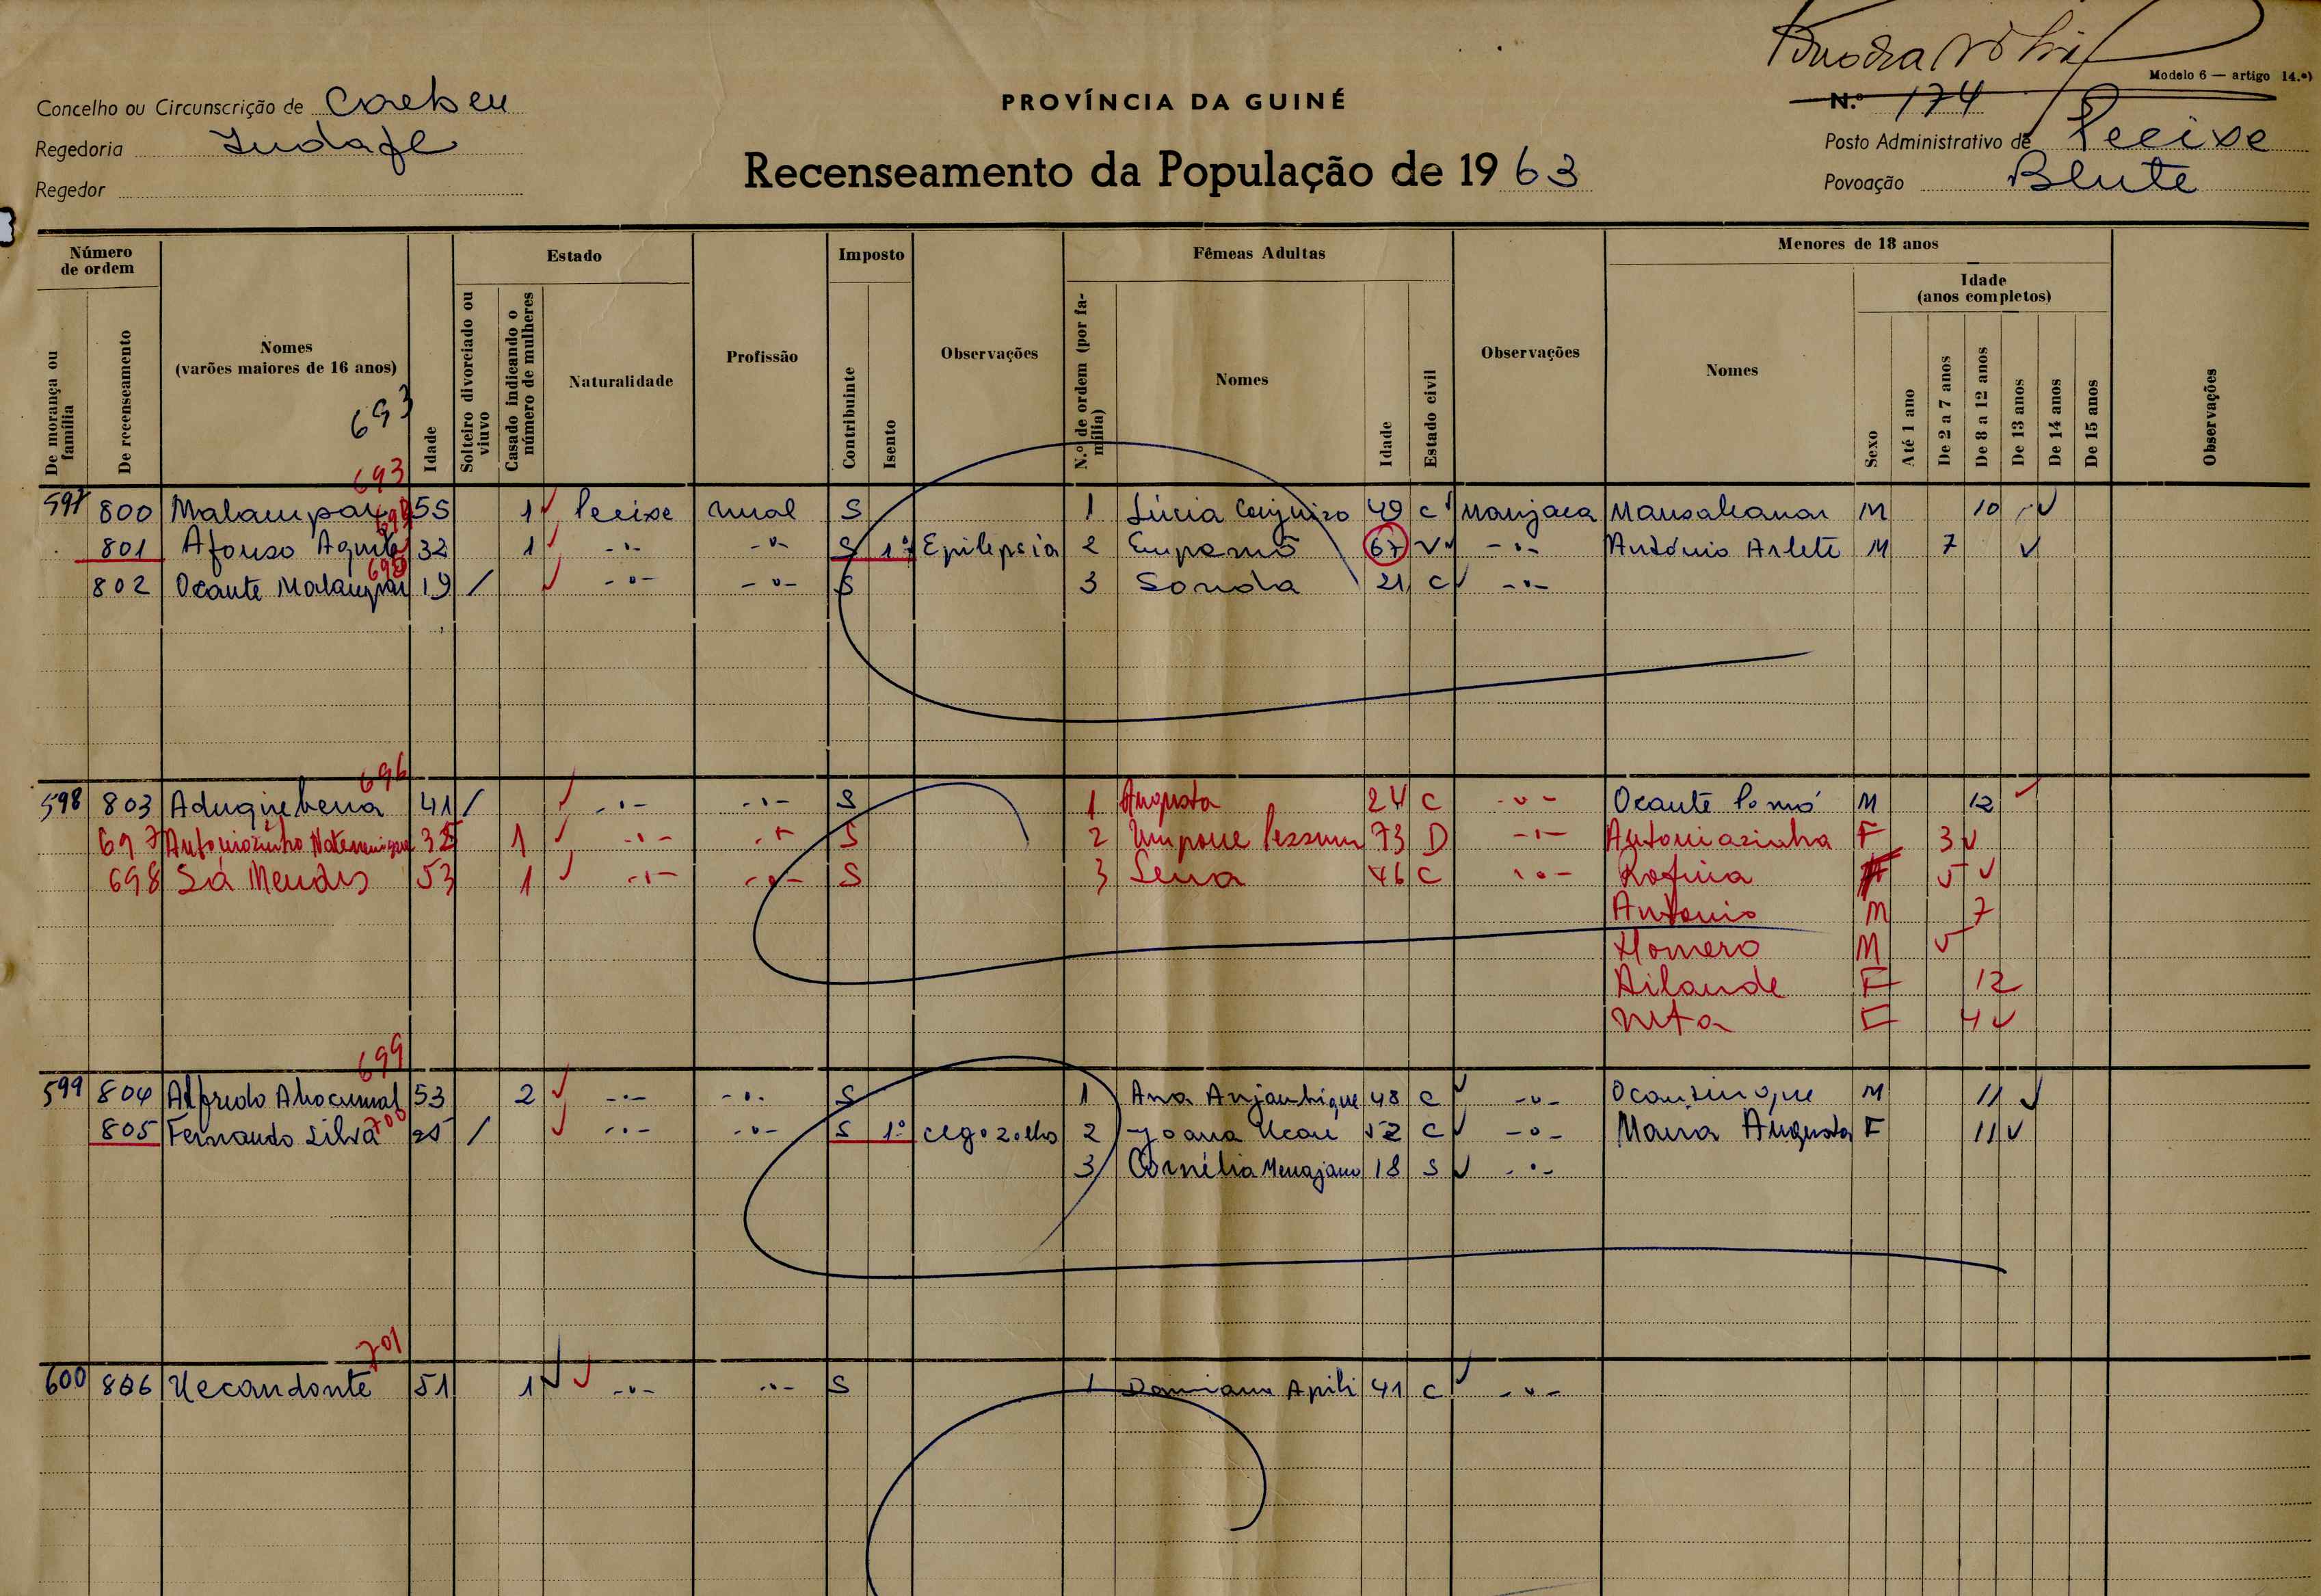 Modelo 6 — artigo 14.º)
PROVÍNCIA DA GUINÉ
N.º 174
Concelho ou Circunscrição de
Regedoria
Regedor
Posto Administrativo de Pecixe
Povoação Blute
Recenseamento da População de 1963
Número de ordem
Estado
Imposto
Fêmeas Adultas
Menores de 18 anos
Idade (anos completos)
De morança ou família
De recenseamento
Nomes (varões maiores de 16 anos)
Idade
Solteiro divorciado ou viuvo
Casado indicando o número de mulheres
Naturalidade
Profissão
Contribuinte
Isento
Observações
N.º de ordem (por família)
Nomes
Idade
Estado civil
Observações
Nomes
Sexo
Até 1 ano
De 2 a 7 anos
De 8 a 12 anos
De 13 anos
De 14 anos
De 15 anos
Observações
693
693
597 800 55 1 Pecixe rural S 1 Lúcia 49 C Manjaca M 10
801 Afonso 32 1 -"- -"- S 1º Epilepsia 2 67 V -"- António Arlete M 7
802 Ocante 19 / -"- -"- S 3 Sonda 21 C -"-
696
598 803 41 / -"- -"- S 1 Augusta 24 C -"- Ocante M 12
697 1 -"- -"- S 2 73 D -"- Antoniazinha F 3
698 Sá Mendes 53 1 -"- -"- S 3 46 C -"- Rofina F 5
António M 7
Homero M 5
Ailande F 12
Neta F 4
699
599 804 Alfredo 53 2 -"- -"- S 1 Ana 48 C -"- M 11
700
805 Fernando Silva 25 / -"- -"- S 1º cego 2 olho 2 Joana 52 C -"- Maria Augusta F 11
3 Cornélia 18 S -"-
701
600 806 Ucandonte 51 1 -"- -"- S 1 Damiana Apili 41 C -"-